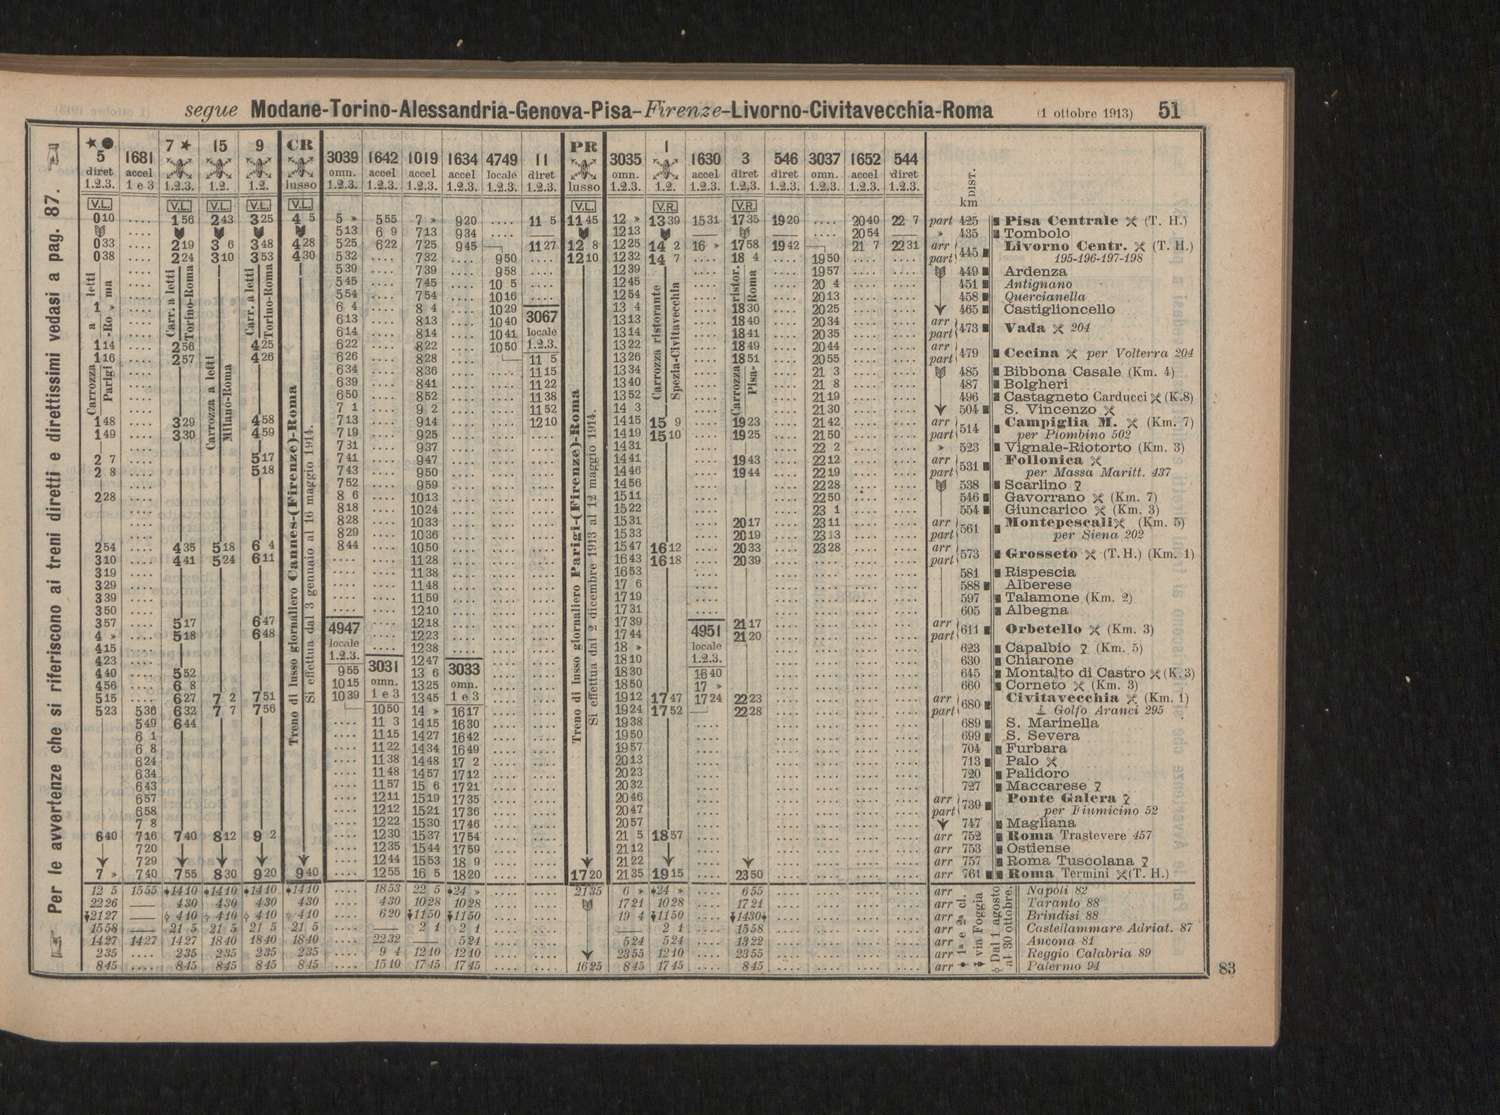 segue Modane-Torino-Alessandria-Genova-Pisa-Firenze-Livorno-Civitavecchia-Roma (1 ottobre 1913) 51
Per le avvertenze che si riferiscono ai treni diretti e direttissimi vedasi a pag. 87.
★ ● 7 ★ 15 9 CR PR 1
5 1681 3039 1642 1019 1634 4749 11 3035 1630 3 546 3037 1652 544
diret accel omn. accel accel accel locale diret omn. accel diret. diret omn. accel diret
1.2.3. 1 e 3 1.2.3. 1.2. 1.2. lusso 1.2.3. 1.2.3. 1.2.3. 1.2.3. 1.2.3. 1.2.3. lusso 1.2.3. 1.2. 1.2.3. 1.2,3. 1.2.3. 1.2.3. 1.2.3. 1.2.3. DIST. km
V.L. V.L. V.L. V.L. V.L. V.L. V.R. V.R.
0 10 .... 1 56 2 43 3 25 4 5 5 » 5 55 7 » 9 20 .... 11 5 11 45 12 » 13 39 15 31 17 35 19 20 .... 20 40 22 7 part 425 Pisa Centrale (T. H.)
5 13 6 9 7 13 9 34 .... 12 13 .... 20 54 » 435 Tombolo
0 33 .... 2 19 3 6 3 48 4 28 5 25 6 22 7 25 9 45 11 27 12 8 12 25 14 2 16 » 17 58 19 42 21 7 22 31 arr 445 Livorno Centr. (T. H.)
0 38 .... 2 24 3 10 3 53 4 30 5 32 .... 7 32 .... 9 50 .... 12 10 12 32 14 7 .... 18 4 .... 19 50 .... .... part 195-196-197-198
5 39 .... 7 39 .... 9 58 .... 12 39 .... 19 57 .... .... 449 Ardenza
5 45 .... 7 45 .... 10 5 .... 12 45 .... 20 4 .... .... 451 Antignano
5 54 .... 7 54 .... 10 16 .... 12 54 .... 20 13 .... .... 458 Quercianella
1 » 6 4 .... 8 4 .... 10 29 13 4 .... 18 30 .... 20 25 .... .... 465 Castiglioncello
6 13 .... 8 13 .... 10 40 3067 13 13 .... 18 40 .... 20 34 .... .... arr 473 Vada 204
6 14 .... 8 14 .... 10 41 locale 13 14 .... 18 41 .... 20 35 .... .... part
1 14 .... 2 56 4 25 6 22 .... 8 22 .... 10 50 1.2.3. 13 22 .... 18 49 .... 20 44 .... .... arr 479 Cecina per Volterra 204
1 16 .... 2 57 4 26 6 26 .... 8 28 .... 11 5 13 26 .... 18 51 .... 20 55 .... .... part
6 34 .... 8 36 .... .... 11 15 13 34 .... 21 3 .... .... 485 Bibbona Casale (Km. 4)
6 39 .... 8 41 .... .... 11 22 13 40 .... 21 8 .... .... 487 Bolgheri
6 50 .... 8 52 .... .... 11 38 13 52 .... 21 19 .... .... 496 Castagneto Carducci (K.8)
7 1 .... 9 2 .... .... 11 52 14 3 .... 21 30 .... .... 504 S. Vincenzo
1 48 .... 3 29 4 58 7 13 .... 9 14 .... .... 12 10 14 15 15 9 .... 19 23 .... 21 42 .... .... arr 514 Campiglia M. (Km. 7)
1 49 .... 3 30 4 59 7 19 .... 9 25 .... .... .... 14 19 15 10 .... 19 25 .... 21 50 .... .... part per Piombino 502
5 17 7 31 .... 9 37 .... .... .... 14 31 .... 22 2 .... .... » 523 Vignale-Riotorto (Km. 3)
2 7 .... 5 17 7 41 .... 9 47 .... .... .... 14 41 .... 19 43 .... 22 12 .... .... arr 531 Follonica
2 8 .... 5 18 7 43 .... 9 50 .... .... .... 14 46 .... 19 44 .... 22 19 .... .... part per Massa Maritt. 437
7 52 .... 9 59 .... .... .... 14 56 .... 22 28 .... .... 538 Scarlino
2 28 .... 8 6 .... 10 13 .... .... .... 15 11 .... 22 50 .... .... 546 Gavorrano (Km. 7)
8 18 .... 10 24 .... .... .... 15 22 .... 23 1 .... .... 554 Giuncarico (Km. 3)
8 28 .... 10 33 .... .... .... 15 31 .... 20 17 .... 23 11 .... .... arr 561 Montepescali (Km. 5)
8 29 .... 10 36 .... .... .... 15 33 .... 20 19 .... 23 13 .... .... part per Siena 202
2 54 .... 4 35 5 18 6 4 8 44 .... 10 50 .... .... .... 15 47 16 12 .... 20 33 .... 23 28 .... .... arr 573 Grosseto (T. H.) (Km. 1)
3 10 .... 4 41 5 24 6 11 .... .... 11 28 .... .... .... 16 43 16 18 .... 20 39 .... .... .... .... part
3 19 .... 11 38 .... 16 53 .... 581 Rispescia
3 29 .... 11 48 .... 17 6 .... 588 Alberese
3 39 .... 11 59 .... 17 19 .... 597 Talamone (Km. 2)
3 50 .... 12 10 .... 17 31 .... 605 Albegna
3 57 .... 5 17 6 47 4947 .... 12 18 .... 17 39 4951 21 17 .... arr 611 Orbetello (Km. 3)
4 » .... 5 18 6 48 locale .... 12 23 .... 17 44 locale 21 20 .... part
4 15 .... 1.2.3. .... 12 38 .... 18 » 1.2.3. .... 623 Capalbio (Km. 5)
4 23 .... 3031 12 47 3033 .... 18 10 .... 630 Chiarone
4 40 .... 5 52 9 55 omn. 13 6 omn. .... 18 30 16 40 .... 645 Montalto di Castro (K.3)
4 56 .... 6 8 10 15 1 e 3 13 25 1 e 3 .... 18 50 17 » .... 660 Corneto (Km. 3)
5 15 .... 6 27 7 2 7 51 10 39 13 45 .... 19 12 17 47 17 24 22 23 .... arr 680 Civitavecchia (Km. 1)
5 23 5 36 6 32 7 7 7 56 10 50 14 » 16 17 .... 19 24 17 52 22 28 .... part Golfo Aranci 295
5 49 6 44 .... 11 3 14 15 16 30 .... 19 38 .... 689 S. Marinella
6 1 .... 11 15 14 27 16 42 .... 19 50 .... 699 S. Severa
6 8 .... 11 22 14 34 16 49 .... 19 57 .... 704 Furbara
6 24 .... 11 38 14 48 17 2 .... 20 13 .... 713 Palo
6 34 .... 11 48 14 57 17 12 .... 20 23 .... 720 Palidoro
6 43 .... 11 57 15 6 17 21 .... 20 32 .... 727 Maccarese
6 57 .... 12 11 15 19 17 35 .... 20 46 .... arr 739 Ponte Galera
6 58 .... 12 12 15 21 17 36 .... 20 47 .... part per Fiumicino 52
7 8 .... 12 22 15 30 17 46 .... 20 57 .... 747 Magliana
6 40 7 16 7 40 8 12 9 2 .... 12 30 15 37 17 54 .... 21 5 18 57 .... arr 752 Roma Trastevere 457
7 20 .... 12 35 15 44 17 59 .... 21 12 .... arr 753 Ostiense
7 29 .... 12 44 15 53 18 9 .... 21 22 .... arr 757 Roma Tuscolana
7 » 7 40 7 55 8 30 9 20 9 40 .... 12 55 16 5 18 20 .... .... 17 20 21 35 19 15 .... 23 50 .... arr 761 Roma Termini (T. H.)
12 5 15 55 14 10 14 10 14 10 14 10 .... 18 53 22 5 24 » .... .... 21 35 6 » 24 » .... 6 55 .... arr Napoli 82
22 26 — 4 30 4 30 4 30 4 30 .... 4 30 10 28 10 28 .... .... 17 21 10 28 .... 17 21 .... arr Taranto 88
21 27 — 4 10 4 10 4 10 4 10 .... 6 20 11 50 11 50 .... .... 19 4 11 50 .... 14 30 .... arr Brindisi 88
15 58 — 21 5 21 5 21 5 21 5 .... — 2 1 2 1 .... .... — 2 1 .... 15 58 .... arr Castellammare Adriat. 87
14 27 14 27 14 27 18 40 18 40 18 40 .... 22 32 — 5 24 .... .... 5 24 5 24 .... 13 22 .... arr Ancona 81
2 35 .... 2 35 2 35 2 35 2 35 .... 9 4 12 10 12 10 .... .... 23 55 12 10 .... 23 55 .... arr Reggio Calabria 89
8 45 .... 8 45 8 45 8 45 8 45 .... 15 10 17 45 17 45 .... .... 16 25 8 45 17 45 .... 8 45 .... arr Palermo 94
Carrozza a letti
Parigi-Roma
Carr. a letti
Torino-Roma
Carrozza a letti
Milano-Roma
Carr. a letti
Torino-Roma
Treno di lusso giornaliero Cannes-(Firenze)-Roma
Si effettua dal 3 gennaio al 16 maggio 1914.
Treno di lusso giornaliero Parigi-(Firenze)-Roma
Si effettua dal 2 dicembre 1913 al 12 maggio 1914.
Carrozza ristorante
Spezia-Civitavecchia
Carrozza ristor.
Pisa-Roma
1ª e 2ª cl.
via Foggia
Dal 1 agosto
al 30 ottobre
83